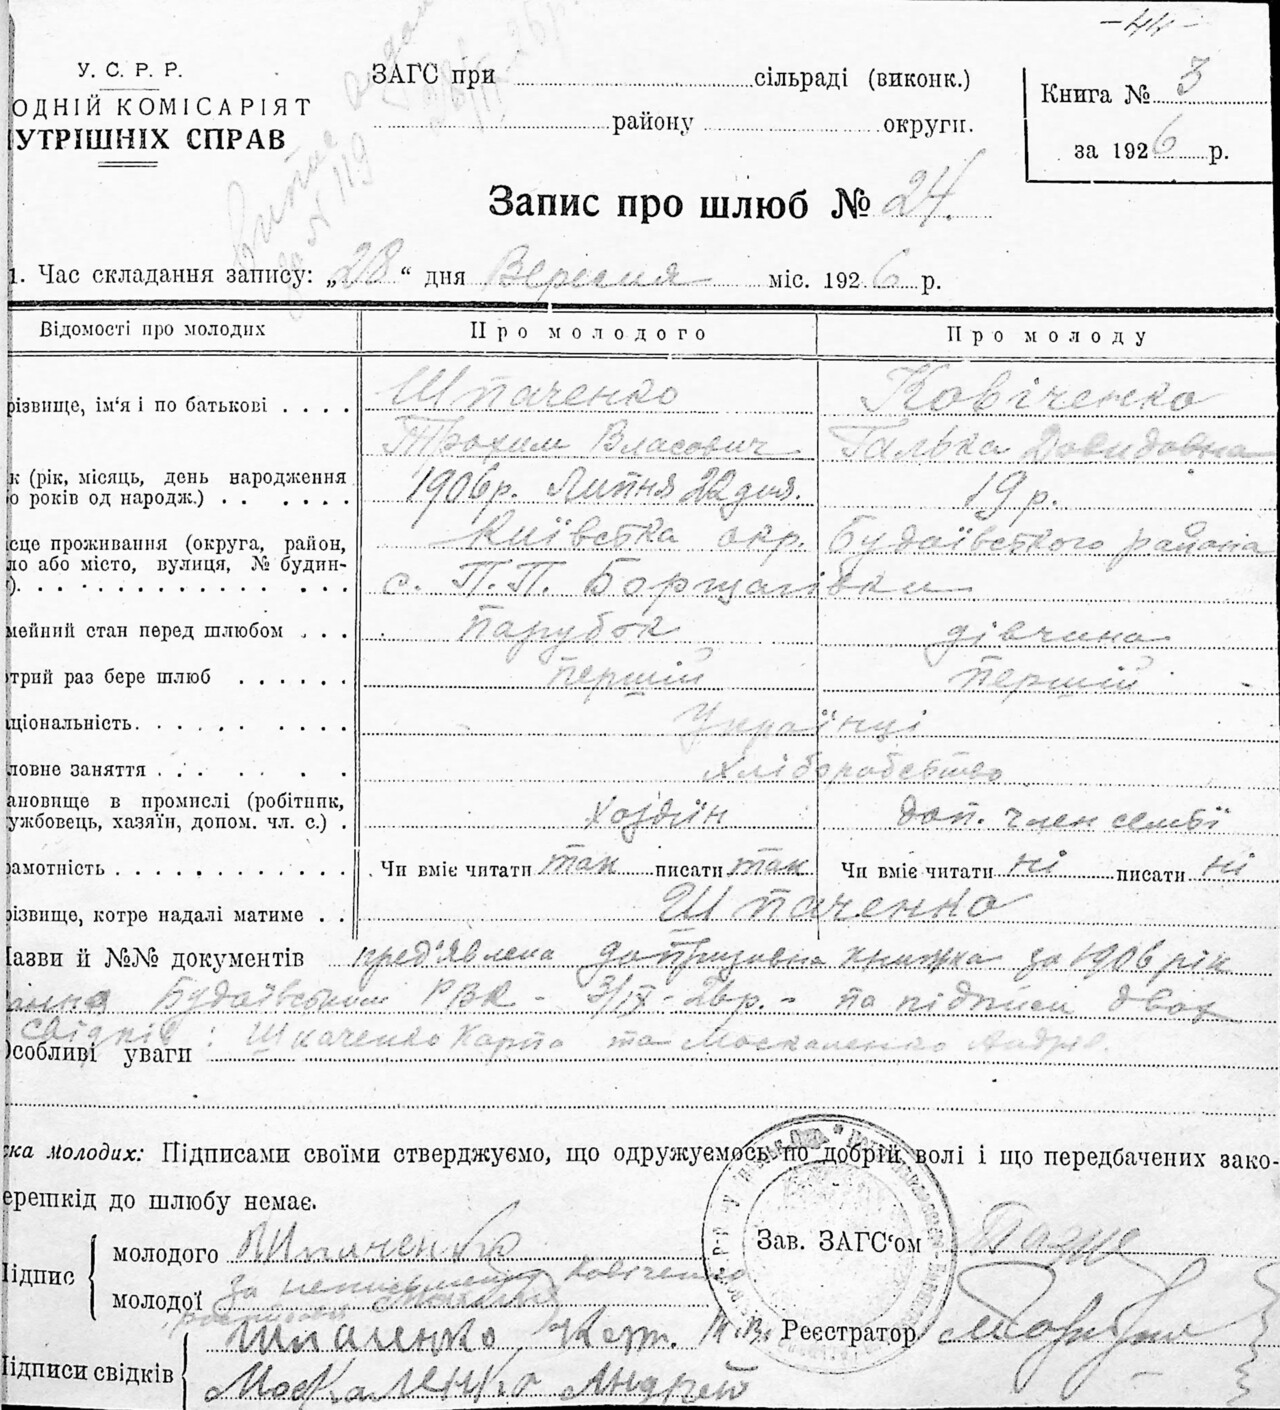 -44-
У. С. Р. Р.
ОДНІЙ КОМІСАРІЯТ
УТРІШНІХ СПРАВ
ЗАГС при сільраді (виконк.)
району округи.
Книга № 3
за 1926 р.
№ 119
Запис про шлюб № 24.
1. Час складання запису: „28“ дня Вересня міс. 1926 р.
Відомості про молодих Про молодого Про молоду
різвище, ім'я і по батькові Шпаченко Ковіченко
Трохим Власович Галька Довидовна
к (рік, місяць, день народження 1906р. Липня 22 дня. 19 р.
о років од народж.)
сце проживання (округа, район, Київстка окр. Будаївсткого района
ло або місто, вулиця, № будин- с. П.П. Борщагівки
мейний стан перед шлюбом парубок дівчина
трий раз бере шлюб першій першій
ціональність Українці
ловне заняття хліборобство
ановище в промислі (робітник, хозяїн доп. член семьї
ужбовець, хазяїн, допом. чл. с.)
амотність Чи вміє читати так писати так Чи вміє читати ні писати ні
різвище, котре надалі матиме Шпаченко
Назви й №№ документів пред'явлена допризовна книжка за 1906 рік
Будаївським РВК - 3/IX - 26р. - та підписи двох
свідків: Шпаченко Карпа та Москаленко Андрія.
Особливі уваги
ка молодих: Підписами своїми стверджуємо, що одружуємось по добрій волі і що передбачених зако-
ерешкід до шлюбу немає.
Підпис молодого Шпаченко
молодої за неписьменну Ковіченко
Зав. ЗАГС'ом
Реєстратор
Підписи свідків Шпаченко Карп.
Москаленко Андрей